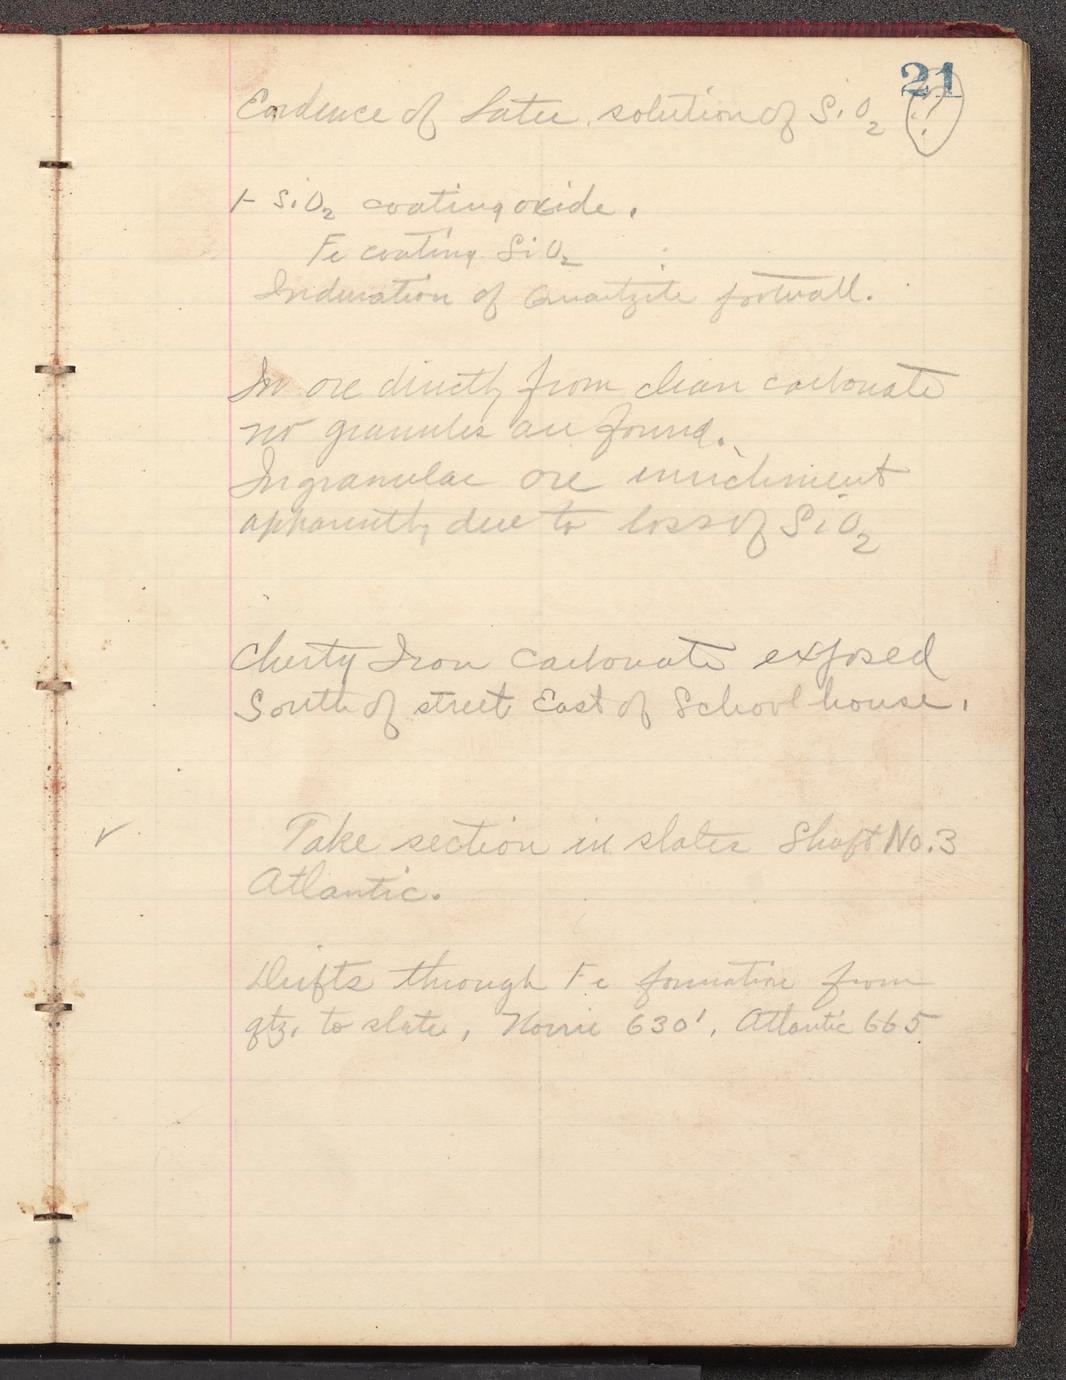 21
Evidence of later solution of SiO2 (!)
1- SiO2 coating oxide.
Fe coating SiO2
Induration of Quartzite footwall.
In ore directly from clean carbonate
no granules are found.
In granular ore enrichment
apparently due to loss of SiO2
Cherty Iron Carbonate exposed
South of street East of School house.
✓ Take section in slates Shaft No. 3
Atlantic.
Drifts through Fe formation from
qtz. to slate, Norrie 630', Atlantic 665